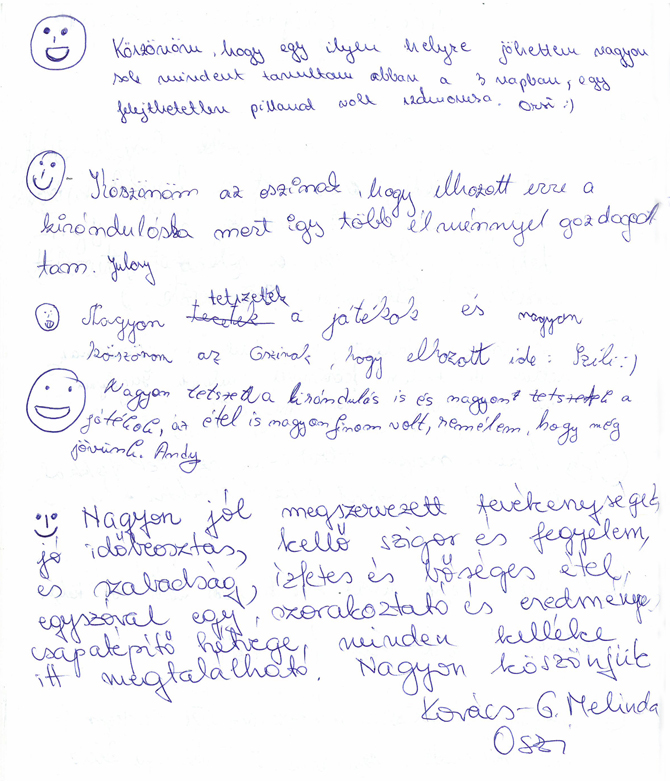 Köszönöm, hogy egy ilyen helyre jöhettem nagyon
sok mindent tanultam ebban a 3 napban, egy
felejthetetlen pillanat volt számomra. Orsi :)
Köszönöm az oszinak, hogy elhozott erre a
kirándulóska mert így több élménnyel gazdagod
tam. Julcsy
tetszettek
Nagyon a játékok és nagyon
köszönöm az Oszinak, hogy elhozott ide: Szili:)
Nagyon tetszett a kirándulás is és nagyon a
játékok, az étel is nagyon finom volt, remélem, hogy még
jövünk. Andy
Nagyon jól megszervezett tevékenységek,
jó időbeosztás, kellő szigor és fegyelem,
és szabadság, ízletes és bőséges étel,
egyszóval egy, szórakoztató és eredménye
csapatépítő hétvége, minden kelléke
itt megtalálható. Nagyon köszönjük
Kovács-G. Melinda
Oszi